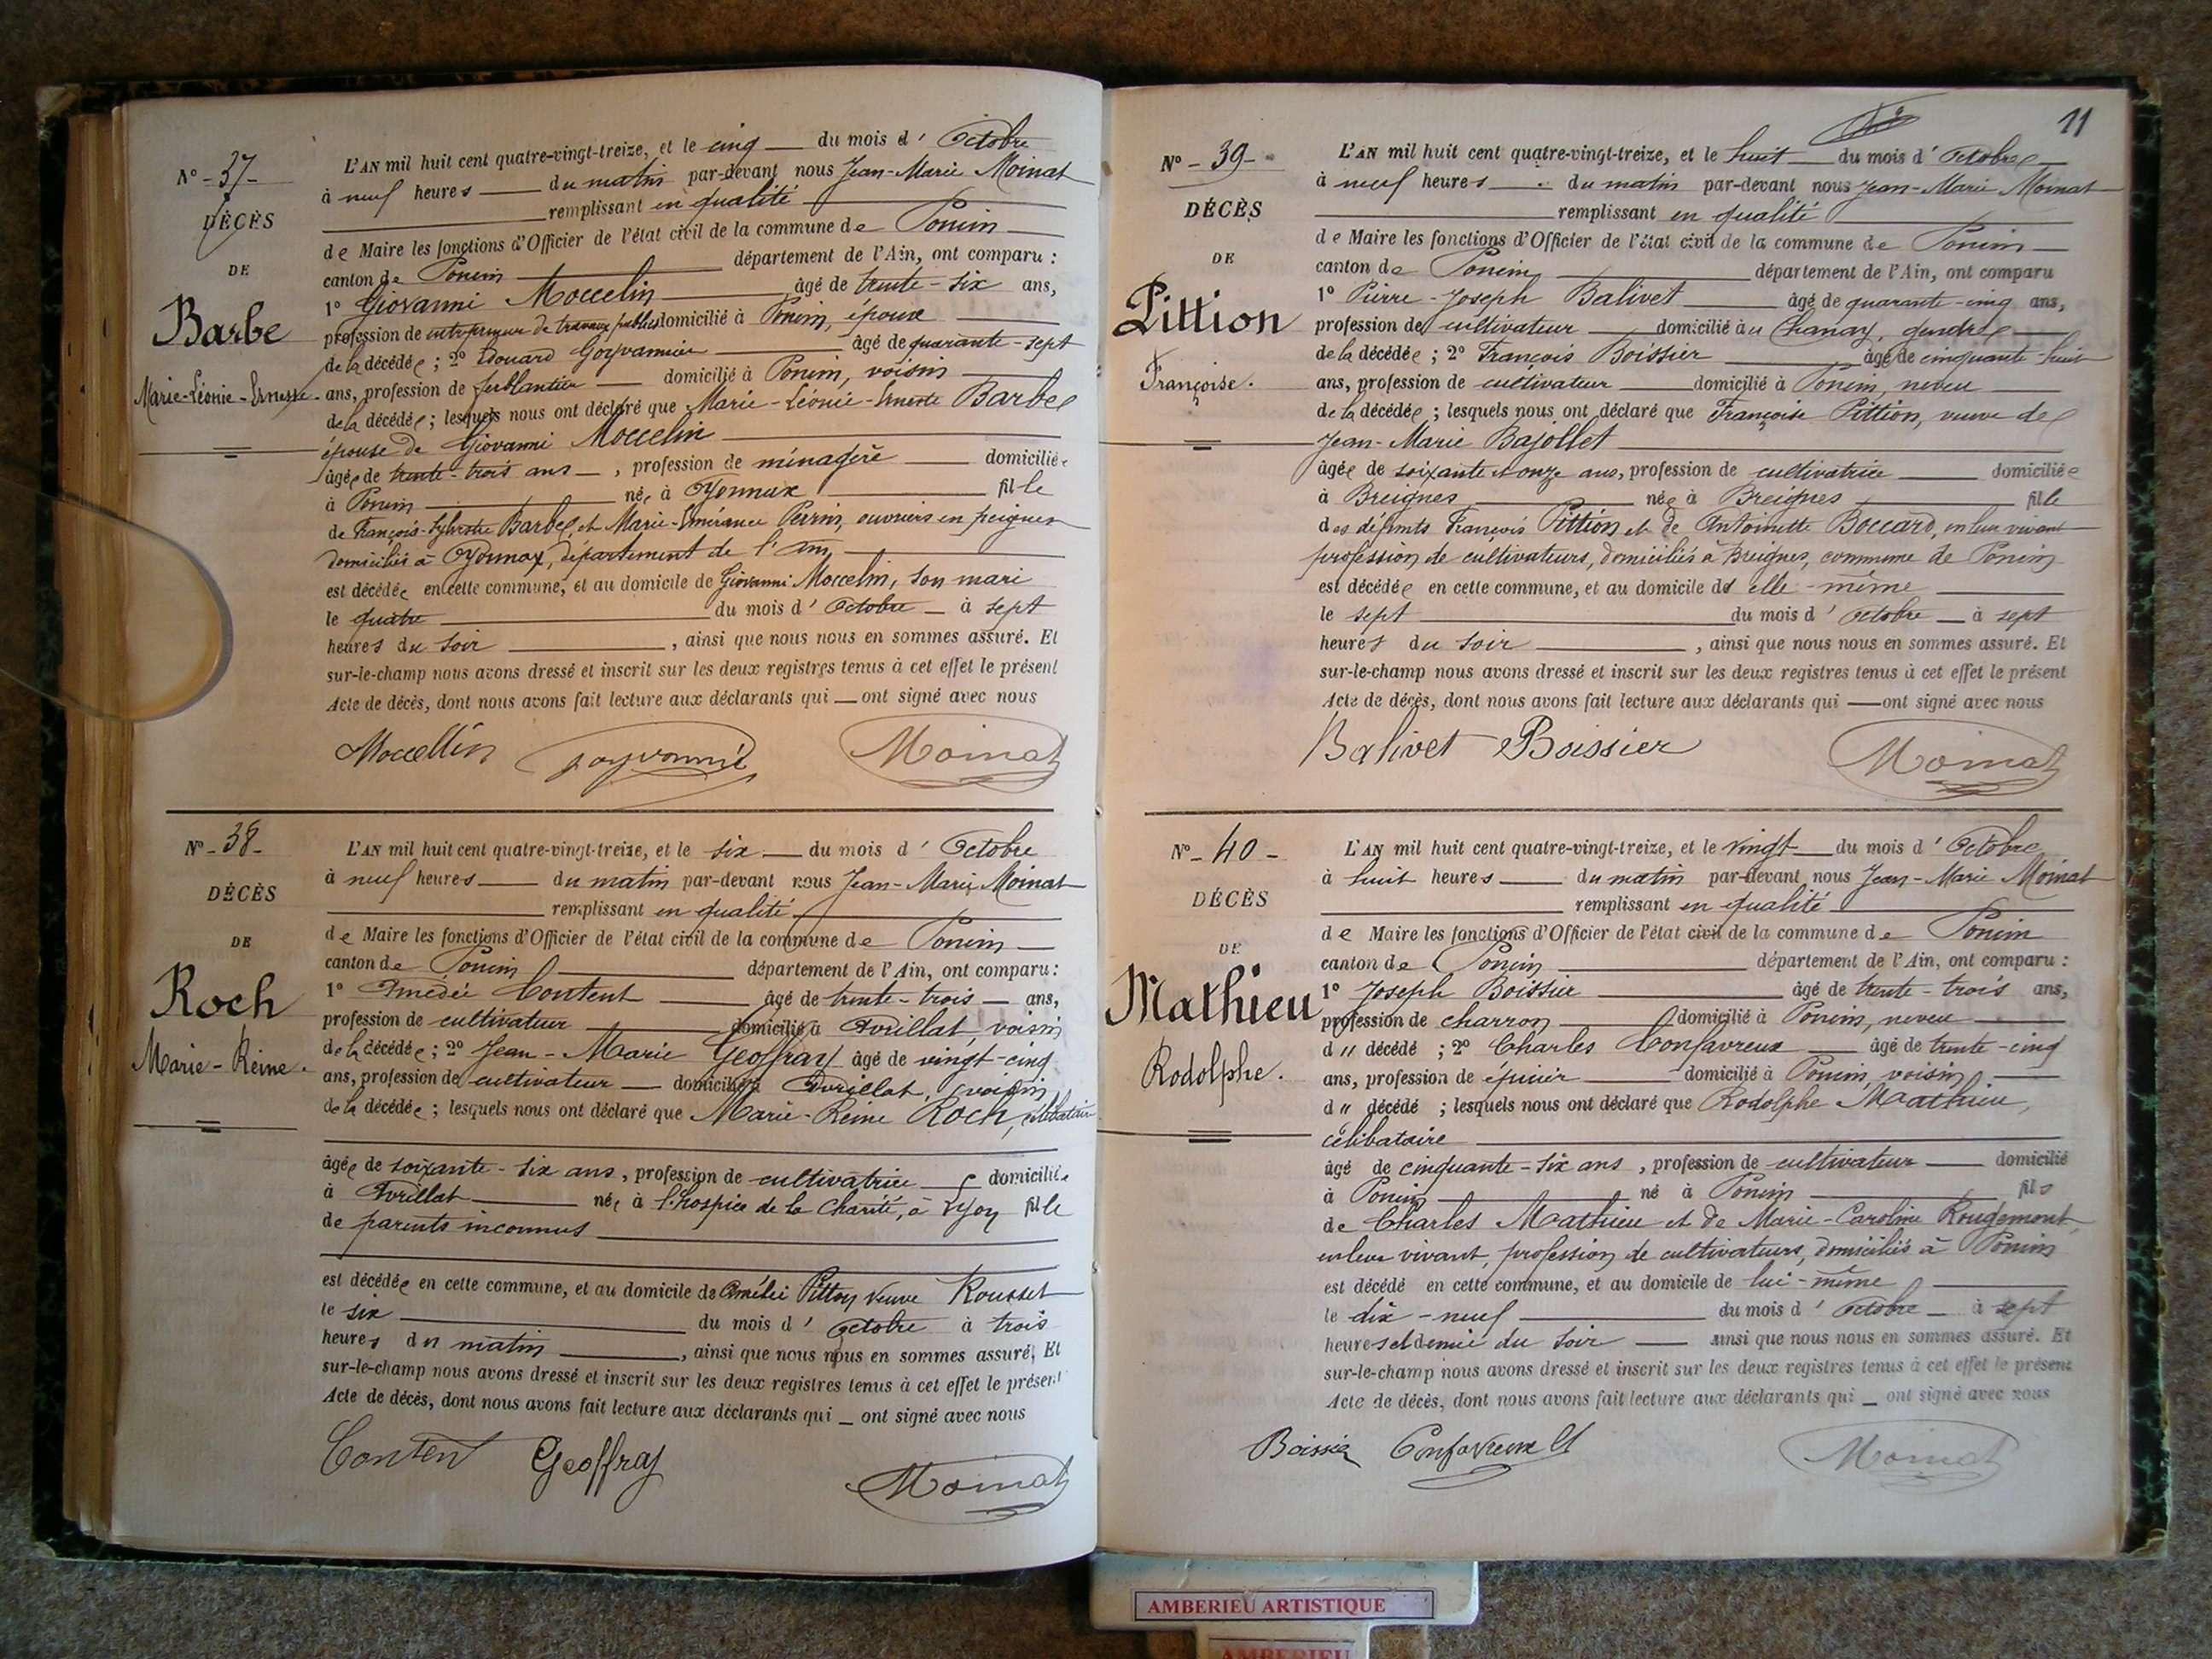 N° - 37 -
DÉCÈS
DE
Barbe
Marie-Léonie-Ernestine
L'AN mil huit cent quatre-vingt-treize, et le cinq du mois d' Octobre
à neuf heures du matin par-devant nous Jean-Marie Moinat
remplissant en qualité
de Maire les fonctions d'Officier de l'état civil de la commune de Poncin
canton de Poncin département de l'Ain, ont comparu :
1° Giovanni Moccelin âgé de trente-six ans,
profession de entrepreneur de travaux publics domicilié à Poncin, époux
de la décédée ; 2° Edouard Goyvannier âgé de quarante-sept
ans, profession de ferblantier domicilié à Poncin, voisin
de la décédée ; lesquels nous ont déclaré que Marie-Léonie-Ernestine Barbe
épouse de Giovanni Moccelin
âgée de trente-trois ans, profession de ménagère domiciliée
à Poncin née à Oyonnax fille
de François-Sylvestre Barbe, et Marie-Emérance Perrin, ouvriers en peignes
domiciliés à Oyonnax, département de l'Ain,
est décédée en cette commune, et au domicile de Giovanni Moccelin, son mari
le quatre du mois d' Octobre à sept
heures du soir , ainsi que nous nous en sommes assuré. Et
sur-le-champ nous avons dressé et inscrit sur les deux registres tenus à cet effet le présent
Acte de décès, dont nous avons fait lecture aux déclarants qui ont signé avec nous
Moccellin Moinat
N° - 38 -
DÉCÈS
DE
Roch
Marie-Reine.
L'AN mil huit cent quatre-vingt-treize, et le six du mois d' Octobre
à neuf heures du matin par-devant nous Jean-Marie Moinat
remplissant en qualité
de Maire les fonctions d'Officier de l'état civil de la commune de Poncin
canton de Poncin département de l'Ain, ont comparu :
1° Amédée Content âgé de trente-trois ans,
profession de cultivateur domicilié à Avrillat, voisin
de la décédée ; 2° Jean-Marie Geoffray âgé de vingt-cinq
ans, profession de cultivateur domicilié à Avrillat, voisin
de la décédée ; lesquels nous ont déclaré que Marie-Reine Roch, célibataire
âgée de soixante-six ans, profession de cultivatrice domiciliée
à Avrillat née à l'hospice de la Charité, à Lyon fille
de parents inconnus
est décédée en cette commune, et au domicile de Amélie Pittion veuve Rousset
le six du mois d' Octobre à trois
heures du matin , ainsi que nous nous en sommes assuré, Et
sur-le-champ nous avons dressé et inscrit sur les deux registres tenus à cet effet le présent
Acte de décès, dont nous avons fait lecture aux déclarants qui ont signé avec nous
Content Geoffray
Moinat
11
N° - 39 -
DÉCÈS
DE
Pittion
Françoise.
L'AN mil huit cent quatre-vingt-treize, et le huit du mois d' Octobre
à neuf heures du matin par-devant nous Jean-Marie Moinat
remplissant en qualité
de Maire les fonctions d'Officier de l'état civil de la commune de Poncin
canton de Poncin département de l'Ain, ont comparu
1° Pierre-Joseph Balivet âgé de quarante-cinq ans,
profession de cultivateur domicilié au Chanay, gendre
de la décédée ; 2° François Boissier âgé de cinquante-huit
ans, profession de cultivateur domicilié à Poncin, neveu
de la décédée ; lesquels nous ont déclaré que Françoise Pittion, veuve de
Jean-Marie Bajollet
âgée de soixante et onze ans, profession de cultivatrice domiciliée
à Breignes née à Breignes fille
des défunts François Pittion et de Antoinette Boccard, en leur vivant
profession de cultivateurs, domiciliés à Breignes, commune de Poncin
est décédée en cette commune, et au domicile de elle-même
le sept du mois d' Octobre à sept
heures du soir , ainsi que nous nous en sommes assuré. Et
sur-le-champ nous avons dressé et inscrit sur les deux registres tenus à cet effet le présent
Acte de décès, dont nous avons fait lecture aux déclarants qui ont signé avec nous
Balivet Boissier
Moinat
N° - 40 -
DÉCÈS
DE
Mathieu
Rodolphe.
L'AN mil huit cent quatre-vingt-treize, et le vingt du mois d' Octobre
à huit heures du matin par-devant nous Jean-Marie Moinat
remplissant en qualité
de Maire les fonctions d'Officier de l'état civil de la commune de Poncin
canton de Poncin département de l'Ain, ont comparu :
1° Joseph Boissier âgé de trente-trois ans,
profession de charron domicilié à Poncin, neveu
d" décédé ; 2° Charles Confavreux âgé de trente-cinq
ans, profession de épicier domicilié à Poncin, voisin
d" décédé ; lesquels nous ont déclaré que Rodolphe Mathieu,
célibataire
âgé de cinquante-six ans, profession de cultivateur domicilié
à Poncin né à Poncin fils
de Charles Mathieu et de Marie-Caroline Rougemont
en leur vivant, profession de cultivateurs, domiciliés à Poncin
est décédé en cette commune, et au domicile de lui-même
le dix-neuf du mois d' Octobre à sept
heures et demie du soir ainsi que nous nous en sommes assuré. Et
sur-le-champ nous avons dressé et inscrit sur les deux registres tenus à cet effet le présent
Acte de décès, dont nous avons fait lecture aux déclarants qui ont signé avec nous
Boissier Confavreux
Moinat
AMBERIEU ARTISTIQUE
AMBERIEU